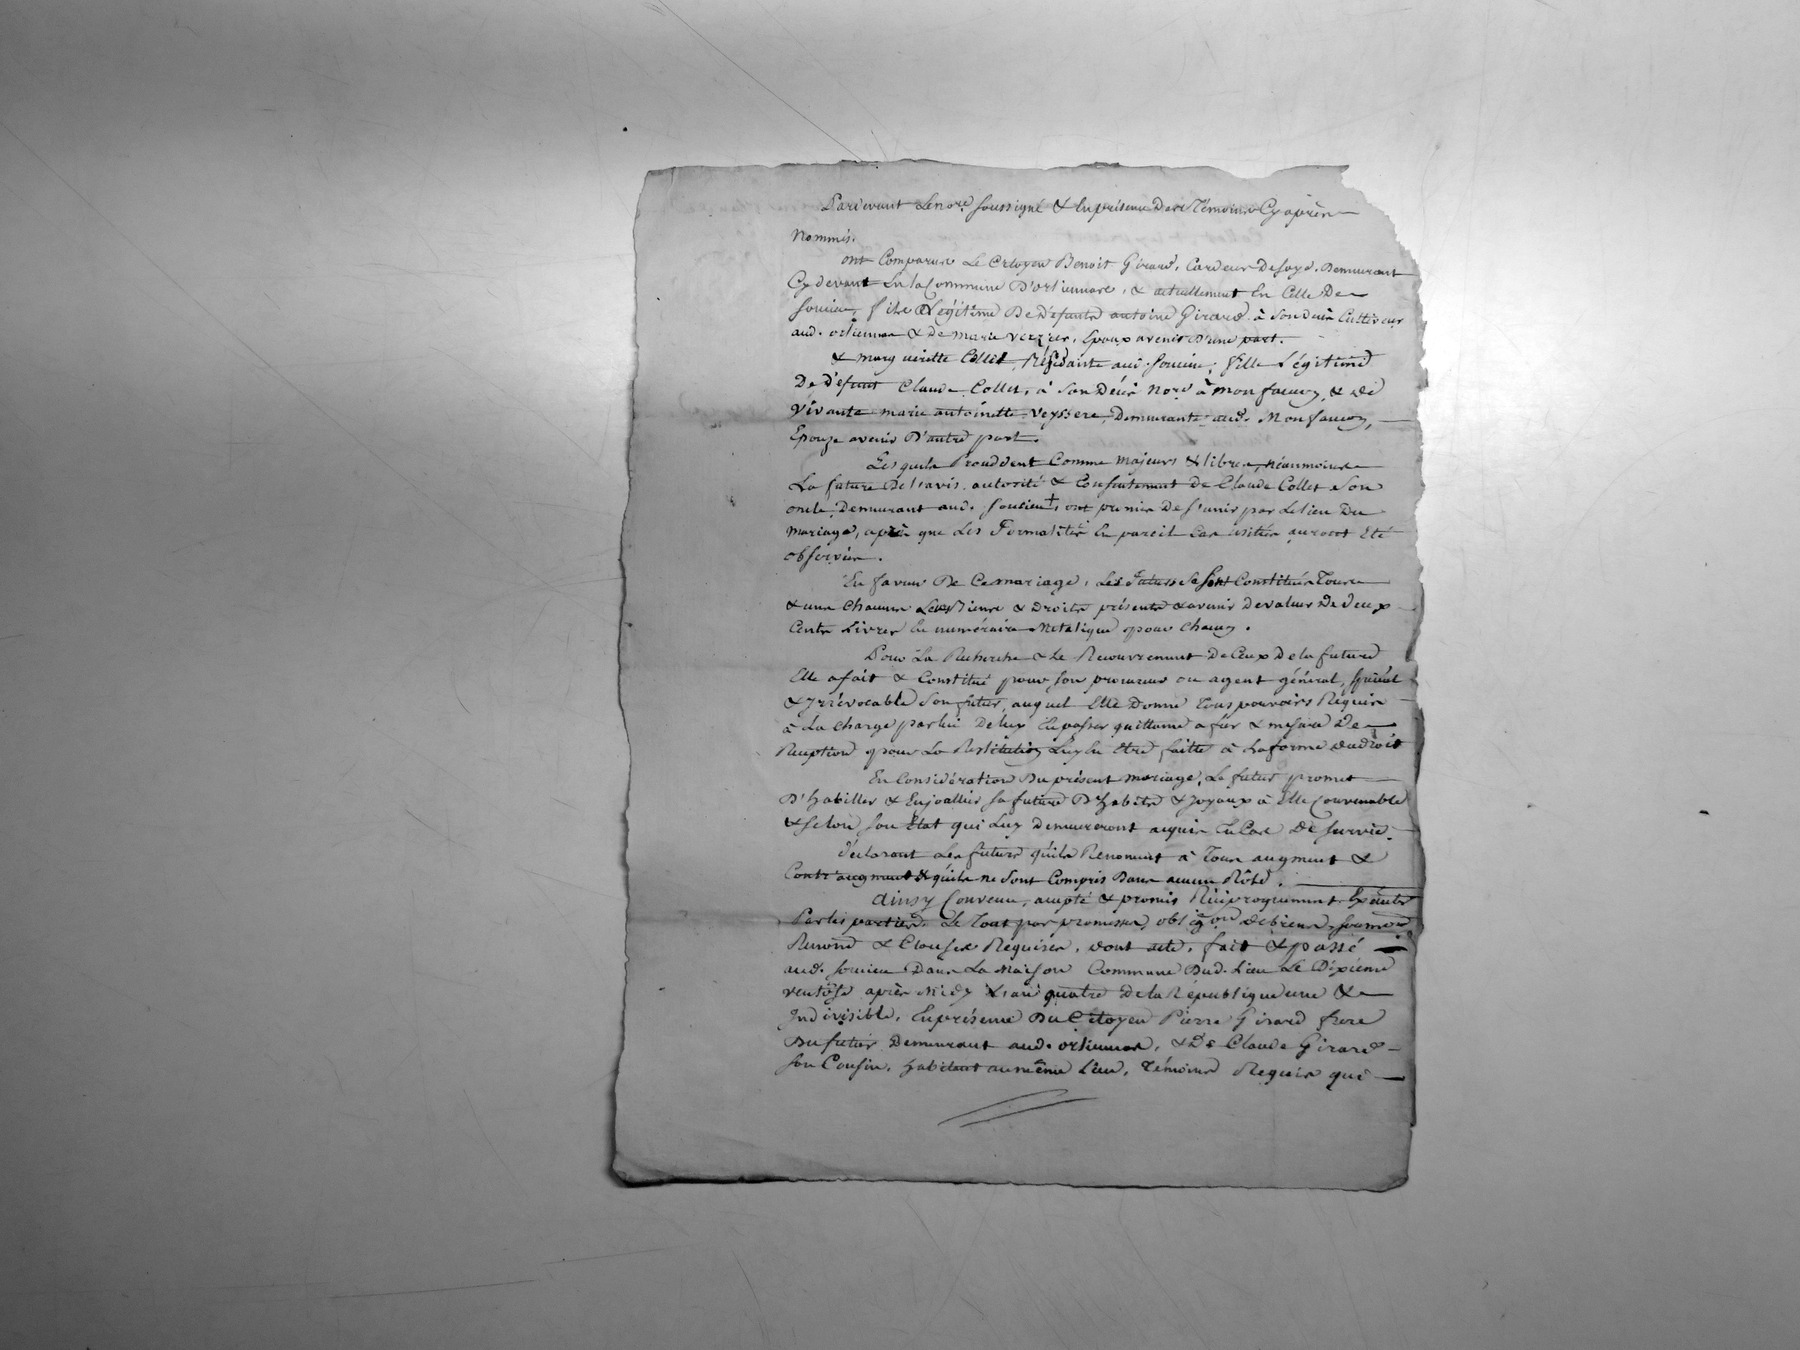 Pardevant Lenore. soussigné & Enprésence Des Témoins Cy après
Nommés.
ont Comparus Le Citoyen Benoit Girard, Cardeur Desoye, Demeurant
Cy devant En la Commune D'orliennas, & actuellement En Celle De
soucieu, fils Légitime De Défunts antoine Girard à Son Décès Cultivateur
aud. orliennas & de marie verzier, Epoux avenir D'une part.
& margueritte Collet, Résidante aud. soucieu, fille Légitime
De Défunt Claude Collet, à Son Décès Nore. à Monfaucon, & de
Vivante marie antoinette Veyssere, Demeurante aud. Monfaucon,
Epouze avenir D'autre part.
Lesquels Procédent Comme Majeurs & libres, néanmoins
La future De l'avis, autorité & Consentement de Claude Collet Son
oncle, Demeurant aud. soucieu, ont promis De s'unir par Le lien Du
Mariage, après que Les Formalités En pareil Cas usitées auront Eté
observées.
En faveur De Ce mariage, Les Futurs Se Sont Constitués Tous
& uns Chacuns Leurs Biens & Droits présents & avenir de valeur De deux
Cents Livres En numéraire Métalique pour Chacun.
Pour La Recherche & Le Recouvrement De Ceux De la future
Elle a fait & Constitué pour son procureur ou agent général, spécial
& Irrévocable Son futur, auquel Elle Donne Tous pouvoirs Requis
à La Charge par lui De luy En passer quittance a fur & mesure De
Reception pour La Restitution Luy En Etre faitte à La forme du droit
En Considération Du présent mariage, Le futur promet
D'habiller & Enjoallier sa future D'habits & Joyaux à Elle Convenables
& selon son Etat qui Luy demeureront acquis En Cas De survie.
déclarant Les futurs qu'ils Renoncent à Tous augment &
Contr'augment & qu'ils ne Sont Compris Dans aucun Rôle.
ainsy Convenu, accepté & promis Réciproquement Exécuter
Par les parties. Le Tout par promesses, oblig.on de biens, soumons
Renons & Clauses Requises, dont acte. fait & passé
aud. soucieu Dans La Maison Commune Dud. Lieu Le Dixieme
ventôse après Midy L'an quatre De la République une &
Indivisible, En présence Du Citoyen Pierre Girard frere
Du futur Demeurant aud. orliennas, & De Claude Girard
son Cousin, habitant au même Lieu, Témoins Requis qui